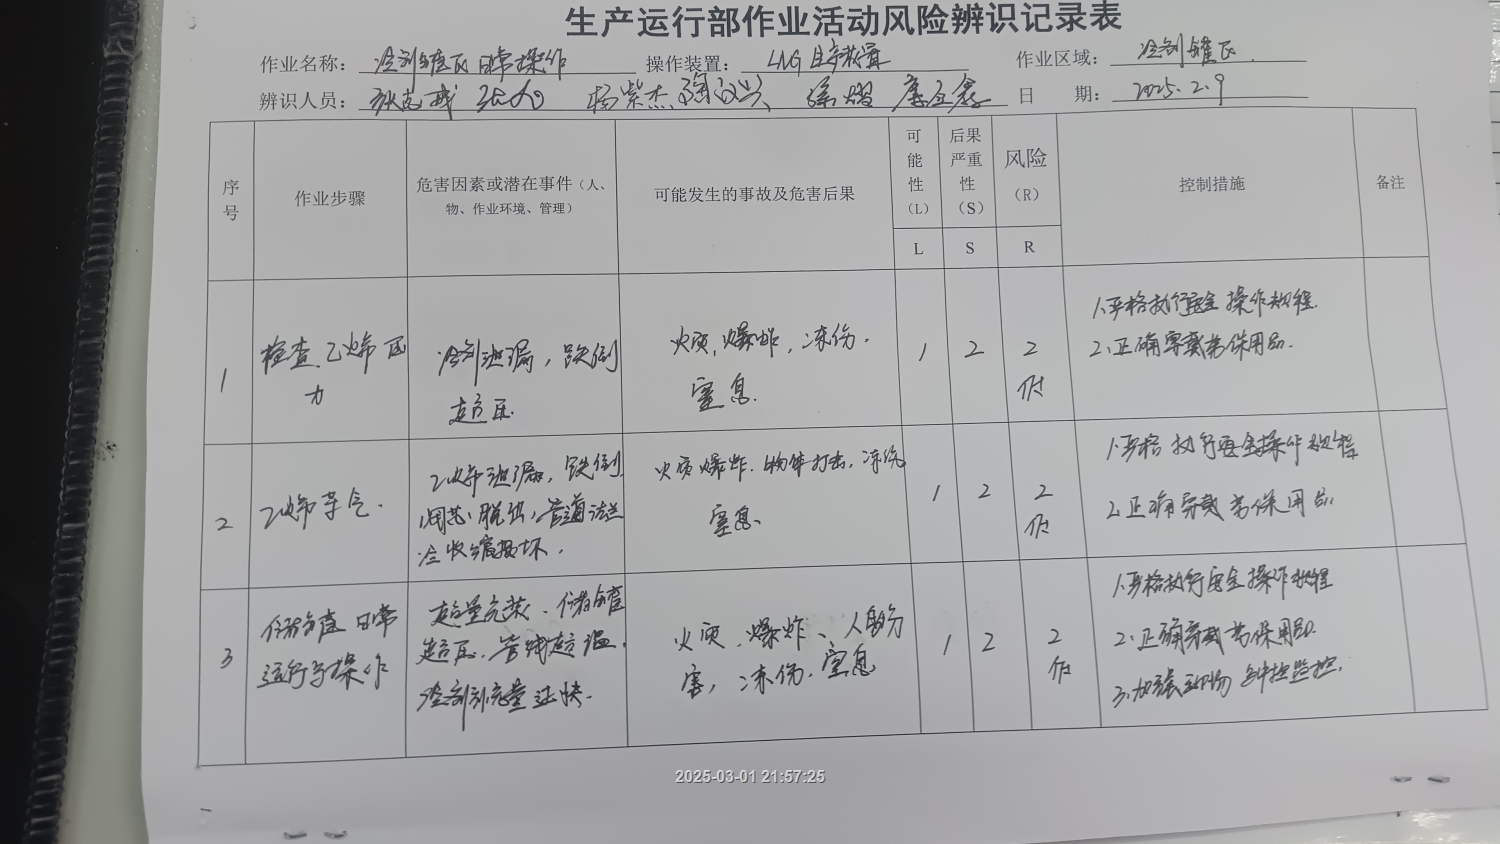 生产运行部作业活动风险辨识记录表
作业名称：冷剂罐区日常操作 操作装置：LNG生产装置 作业区域：冷剂罐区
辨识人员： 杨紫杰 日 期：2025.2.9
序号 作业步骤 危害因素或潜在事件（人、物、作业环境、管理） 可能发生的事故及危害后果 可能性（L） 后果严重性（S） 风险（R） 控制措施 备注
L S R
1 检查乙烯压力 冷剂泄漏，跌倒 超压 火灾，爆炸，冻伤，窒息 1 2 2 低 1.严格执行安全操作规程.
2.正确穿戴劳保用品.
2 乙烯导气. 乙烯泄漏，跌倒 脱出，管道 冷收缩损坏. 火灾爆炸.物体打击.冻伤 窒息、 1 2 2 低 1.严格执行安全操作规程
2.正确穿戴劳保用品.
3 储罐日常运行与操作 超量充装、储罐超压、管线超温. 冷剂充量过快. 火灾、爆炸、人员伤害，冻伤.窒息 1 2 2 低 1.严格执行安全操作规程
2.正确穿戴劳保用品.
3.加强 监控.
2025-03-01 21:57:25